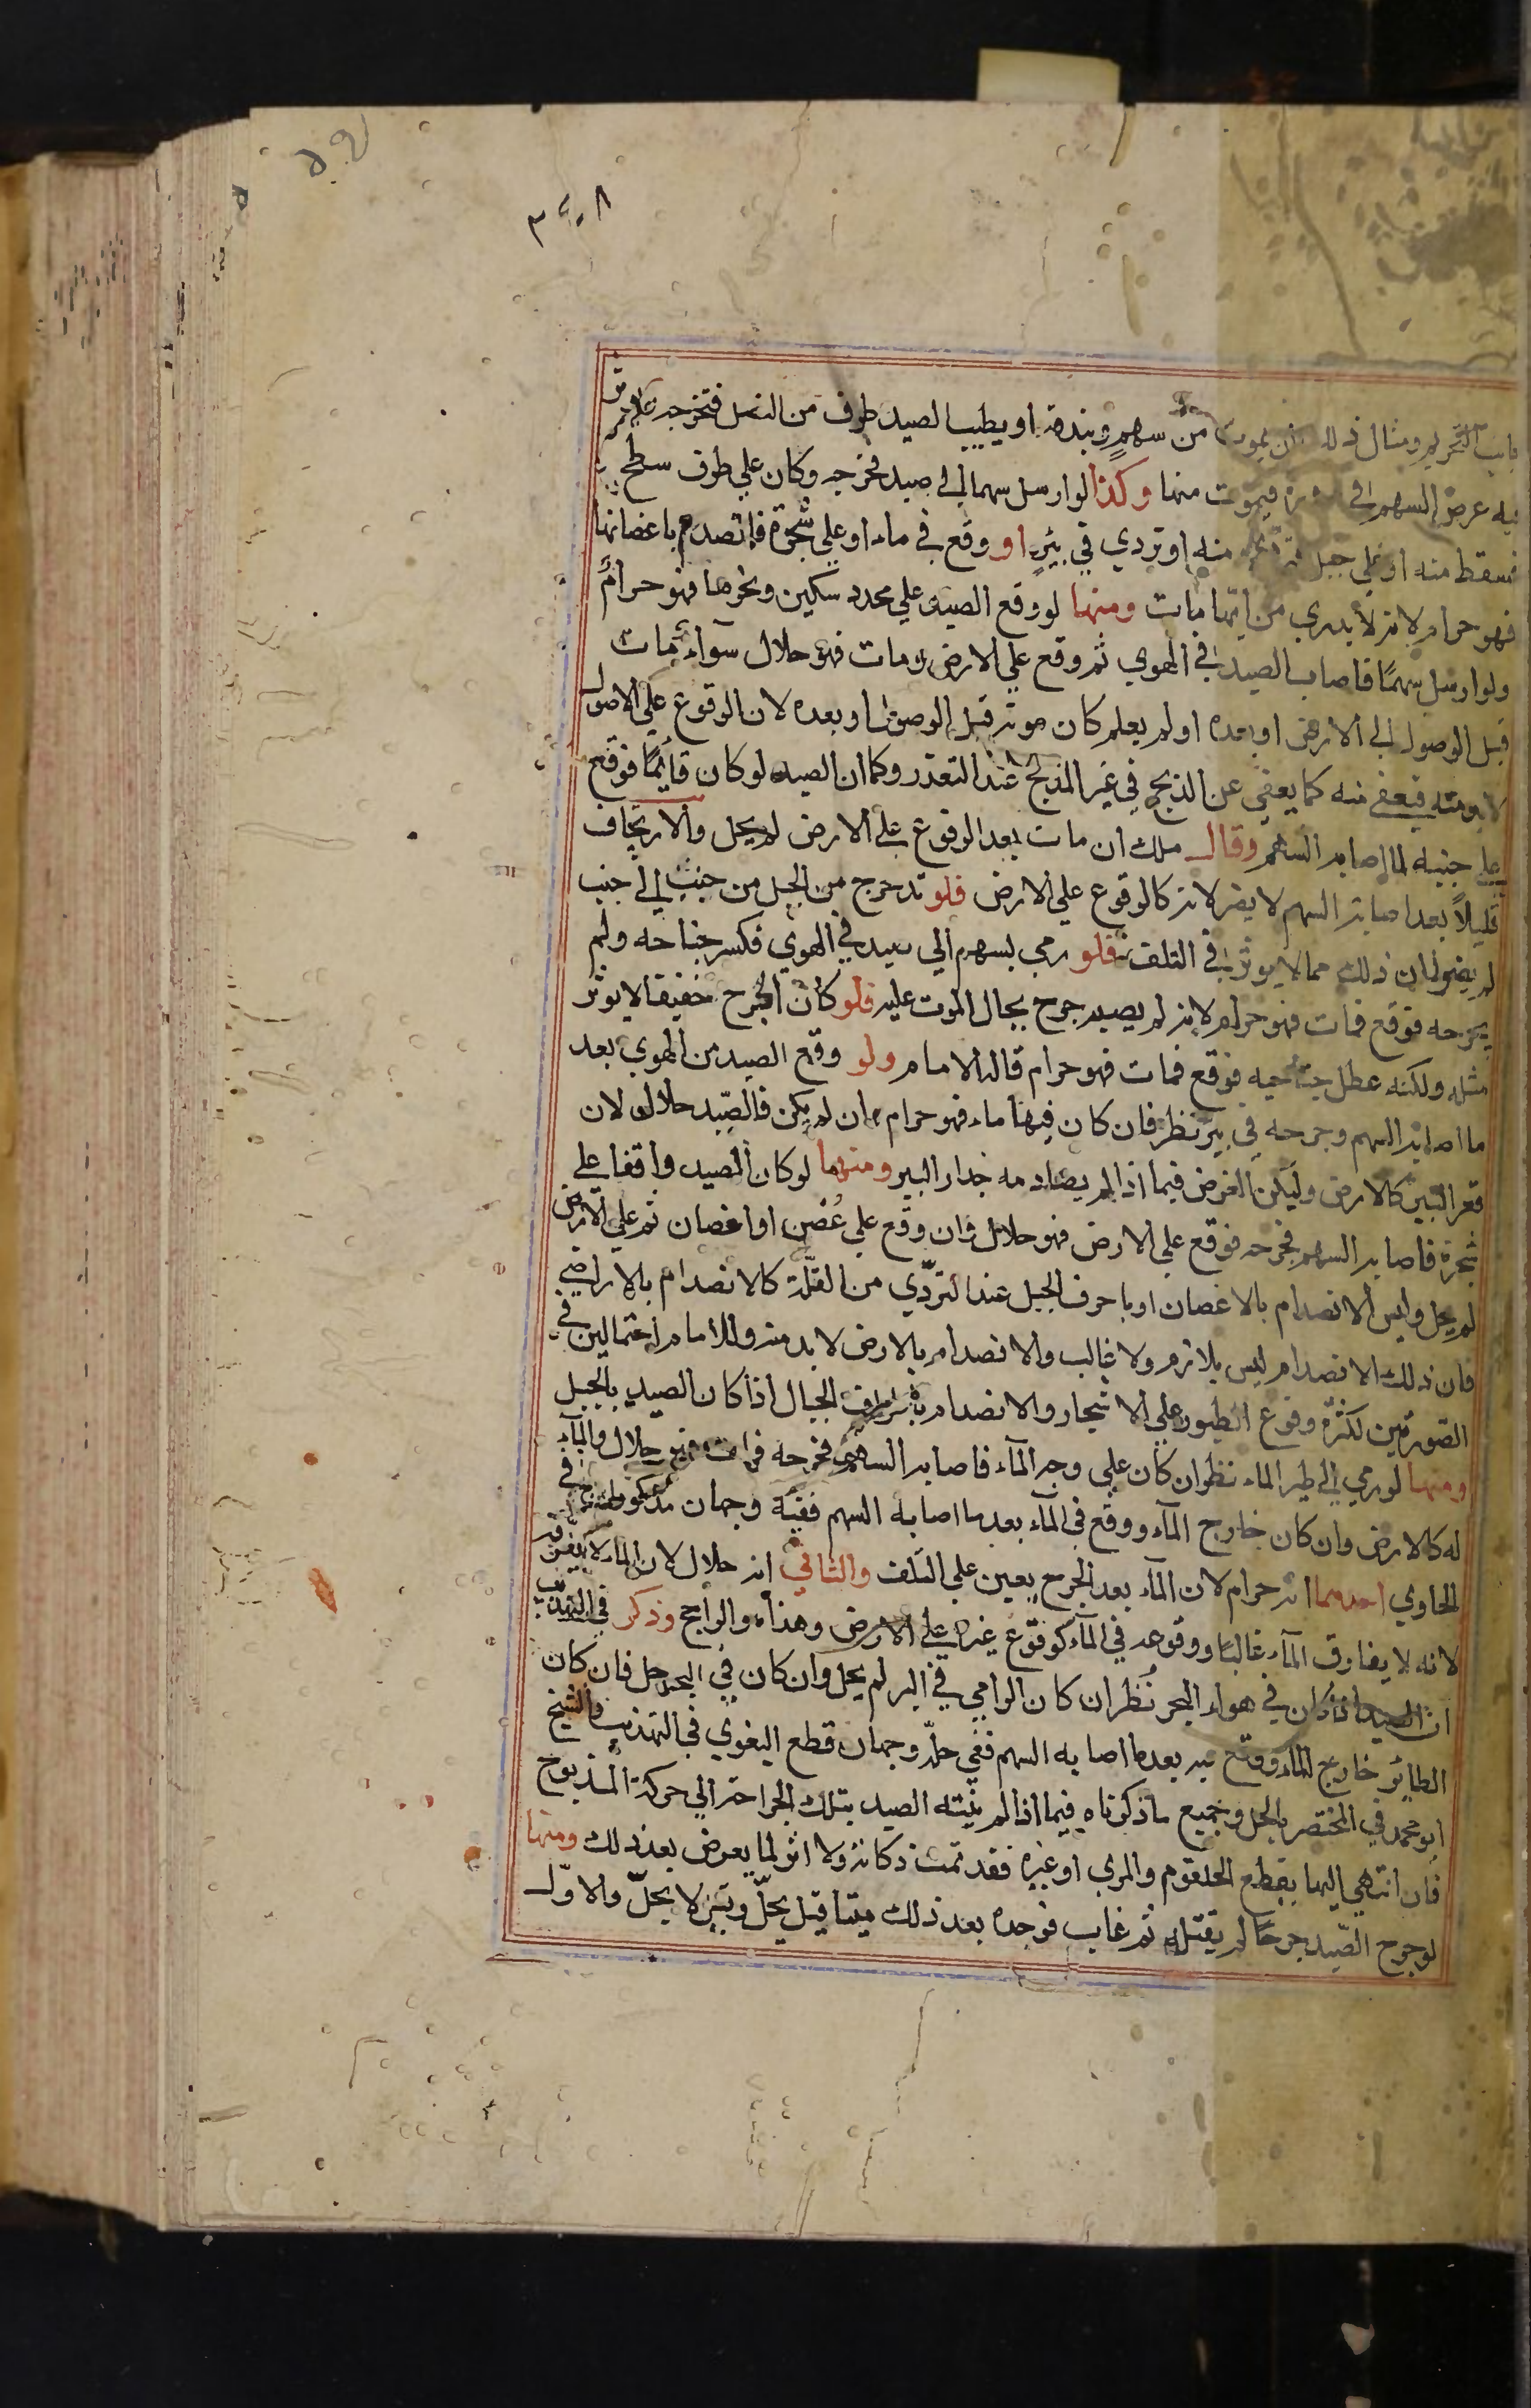 ٣٩٠٨
باب التحريم ومثال ذلك ان يموت من سهم وبندقة او يصيب الصيد طرف من النصل فتخرجه ويؤثر
فيه عرض السهم في مروره فيموت منها وكذا لو ارسل سهما الى صيد فجرحه وكان علي طرف سطح
فسقط منه او علي جبل فتردى منه او تردي في بئر او وقع في ماء او علي شجرة فانصدم باغصانها
فهو حرام لانه لا يدري من ايهما مات ومنها لو وقع الصيد علي محدد سكين ونحوها فهو حرام
ولو ارسل سهما فاصاب الصيد في الهوي ثم وقع علي الارض ومات فهو حلال سوآء مات
قبل الوصول الى الارض او بعده او لم يعلم كان موته قبل الوصول او بعده لان الوقوع علي الارض
لا بد منه فيعفي منه كما يعفي عن الذبح في غير المذبح عند التعذر وكما ان الصيد لو كان قائما فوقع
علي جنبه لما اصابه السهم وقال ملك ان مات بعد الوقوع علي الارض لم يحل والارتجاف
قليلاً بعد اصابة السهم لا يضر لانه كالوقوع علي الارض فلو تدحرج من الجبل من جنب الى جنب
لم يضر لان ذلك مما لا يوثر في التلف فلو رمي بسهم الي صيد في الهوي فكسر جناحه ولم
يجرحه فوقع فمات فهو حرام لانه لم يصبه جرح يحال الموت عليه فلو كان الجرح خفيفا لا يوثر
مثله ولكنه عطل جناحيه فوقع فمات فهو حرام قاله الامام ولو وقع الصيد من الهوي بعد
ما اصابه السهم وجرحه في بير نظر فان كان فيها ماء فهو حرام وان لم يكن فالصيد حلال لان
قعر البير كالارض وليكن الفرض فيما اذا لم يصادمه جدار البير ومنها لو كان الصيد واقفا علي
شجرة فاصابه السهم فجرحه فوقع علي الارض فهو حلال وان وقع علي غصن او اغصان ثم علي الارض
لم يحل وليس الانصدام بالاغصان او باحرف الجبل عند التردي من القلة كالانصدام بالاراضي
فان ذلك الانصدام ليس بلازم ولا غالب والانصدام بالارض لا بد منه وللامام احتمالين في
الصورتين لكثرة وقوع الطيور علي الاشجار والانصدام باطراف الجبال اذا كان الصيد بالجبل
ومنها لو رمي الى طير الماء نظر ان كان علي وجه المآء فاصابه السهم فجرحه فمات فهو حلال والمآء
له كالارض وان كان خارج المآء ووقع في المآء بعد ما اصابه السهم ففيه وجهان مذكوران في
الحاوي احدهما انه حرام لان المآء بعد الجرح يعين علي التلف والثاني انه حلال لان الماء لا يغرقه
لانه لا يفارق المآء غالبا ووقوعه في المآء كوقوع غيره علي الارض وهذا هو الراجح وذكر في التهذيب
ان الصيد اذا كان في هواء البحر نظر ان كان الرامي في البر لم يحل وان كان في البحر حل فان كان
الطائر خارج المآء ووقع فيه بعد ما اصابه السهم ففي حله وجهان قطع البغوي في التهذيب والشيخ
ابو محمد في المختصر بالحل وجميع ما ذكرناه فيما اذا لم ينته الصيد بتلك الجراحة الي حركة المذبوح
فان انتهي اليها بقطع الحلقوم والمري او غيره فقد تمت ذكاته ولا اثر لما يعرض بعد ذلك ومنها
لو جرح الصيد جرحا لم يقتله ثم غاب فوجده بعد ذلك ميتا قيل يحل وقيل لا يحل والاول